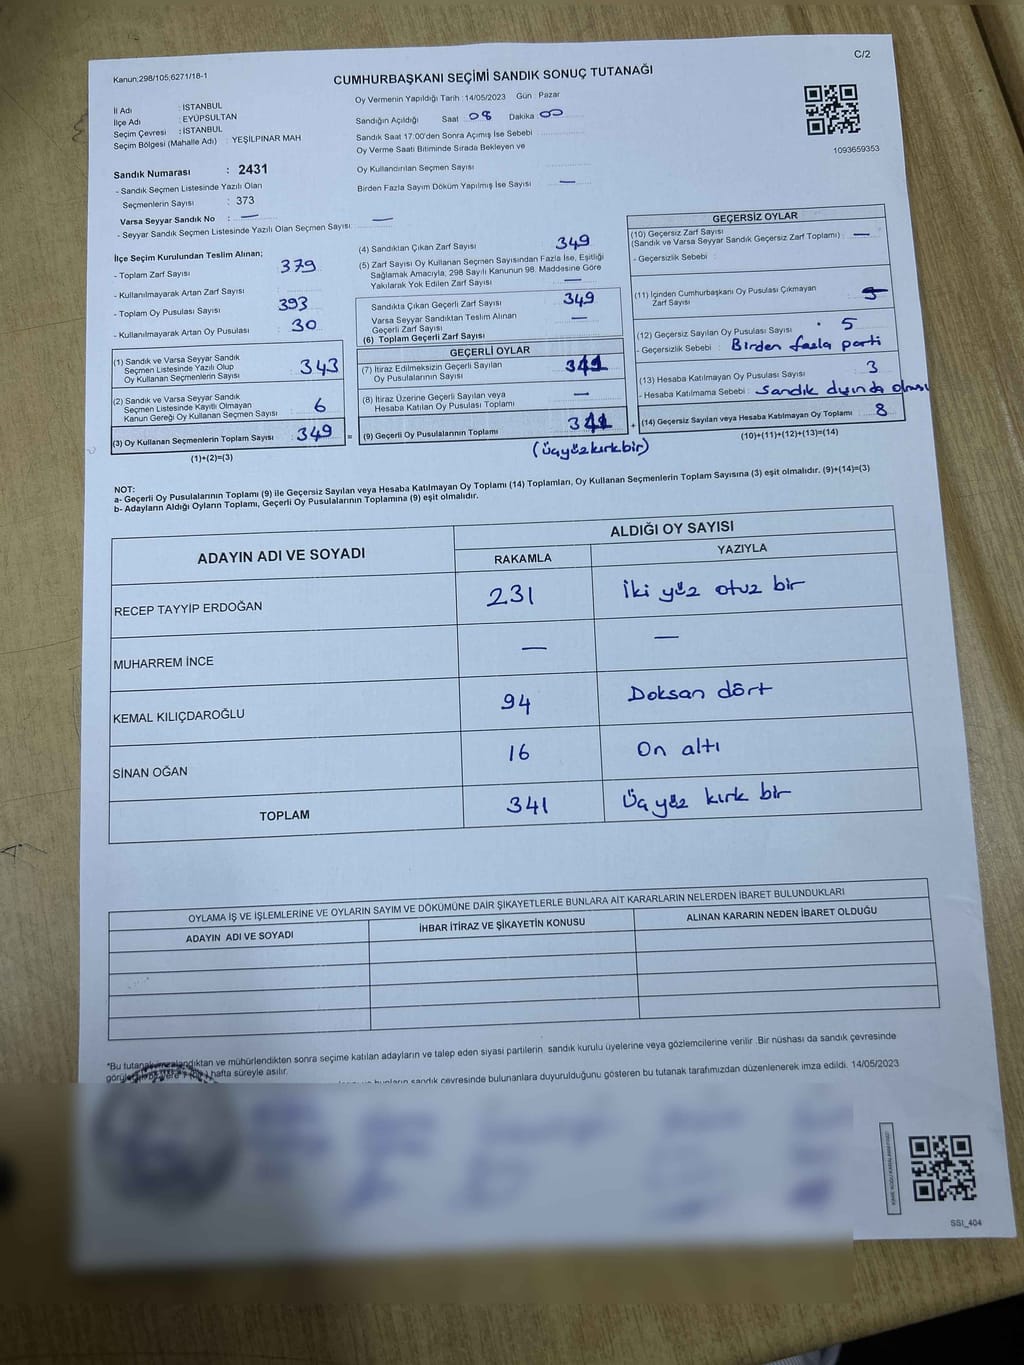 Kanun:298/105,6271/18-1
C/2
CUMHURBAŞKANI SEÇİMİ SANDIK SONUÇ TUTANAĞI
İl Adı : İSTANBUL
İlçe Adı : EYÜPSULTAN
Seçim Çevresi : İSTANBUL
Seçim Bölgesi (Mahalle Adı) : YEŞİLPINAR MAH
Sandık Numarası : 2431
- Sandık Seçmen Listesinde Yazılı Olan
Seçmenlerin Sayısı : 373
Varsa Seyyar Sandık No : —
- Seyyar Sandık Seçmen Listesinde Yazılı Olan Seçmen Sayısı: —
Oy Vermenin Yapıldığı Tarih :14/05/2023 Gün : Pazar
Sandığın Açıldığı Saat 08 Dakika 00
Sandık Saat 17:00'den Sonra Açımış İse Sebebi
Oy Verme Saati Bitiminde Sırada Bekleyen ve
Oy Kullandırılan Seçmen Sayısı
Birden Fazla Sayım Döküm Yapılmış İse Sayısı —
1093659353
İlçe Seçim Kurulundan Teslim Alınan;
- Toplam Zarf Sayısı 379
- Kullanılmayarak Artan Zarf Sayısı
- Toplam Oy Pusulası Sayısı 393
- Kullanılmayarak Artan Oy Pusulası 30
(1) Sandık ve Varsa Seyyar Sandık
Seçmen Listesinde Yazılı Olup
Oy Kullanan Seçmenlerin Sayısı 343
(2) Sandık ve Varsa Seyyar Sandık
Seçmen Listesinde Kayıtlı Olmayan
Kanun Gereği Oy Kullanan Seçmen Sayısı 6
(3) Oy Kullanan Seçmenlerin Toplam Sayısı 349 =
(1)+(2)=(3)
(4) Sandıktan Çıkan Zarf Sayısı 349
(5) Zarf Sayısı Oy Kullanan Seçmen Sayısından Fazla İse, Eşitliği
Sağlamak Amacıyla, 298 Sayılı Kanunun 98. Maddesine Göre
Yakılarak Yok Edilen Zarf Sayısı —
Sandıkta Çıkan Geçerli Zarf Sayısı 349
Varsa Seyyar Sandıktan Teslim Alınan
Geçerli Zarf Sayısı —
(6) Toplam Geçerli Zarf Sayısı
GEÇERLİ OYLAR
(7) İtiraz Edilmeksizin Geçerli Sayılan
Oy Pusulalarının Sayısı 341
(8) İtiraz Üzerine Geçerli Sayılan veya
Hesaba Katılan Oy Pusulası Toplamı —
(9) Geçerli Oy Pusulalarının Toplamı 341 +
(Üçyüzkırkbir)
GEÇERSİZ OYLAR
(10) Geçersiz Zarf Sayısı
(Sandık ve Varsa Seyyar Sandık Geçersiz Zarf Toplamı) : —
- Geçersizlik Sebebi :
(11) İçinden Cumhurbaşkanı Oy Pusulası Çıkmayan
Zarf Sayısı
(12) Geçersiz Sayılan Oy Pusulası Sayısı : 5
- Geçersizlik Sebebi : Birden fazla parti
(13) Hesaba Katılmayan Oy Pusulası Sayısı 3
- Hesaba Katılmama Sebebi : Sandık dışında olması
(14) Geçersiz Sayılan veya Hesaba Katılmayan Oy Toplamı : 8
(10)+(11)+(12)+(13)=(14)
NOT:
a- Geçerli Oy Pusulalarının Toplamı (9) ile Geçersiz Sayılan veya Hesaba Katılmayan Oy Toplamı (14) Toplamları, Oy Kullanan Seçmenlerin Toplam Sayısına (3) eşit olmalıdır. (9)+(14)=(3)
b- Adayların Aldığı Oyların Toplamı, Geçerli Oy Pusulalarının Toplamına (9) eşit olmalıdır.
ADAYIN ADI VE SOYADI
ALDIĞI OY SAYISI
RAKAMLA YAZIYLA
RECEP TAYYİP ERDOĞAN 231 İki yüz otuz bir
MUHARREM İNCE — —
KEMAL KILIÇDAROĞLU 94 Doksan dört
SİNAN OĞAN 16 On altı
TOPLAM 341 Üç yüz kırk bir
OYLAMA İŞ VE İŞLEMLERİNE VE OYLARIN SAYIM VE DÖKÜMÜNE DAİR ŞİKAYETLERLE BUNLARA AİT KARARLARIN NELERDEN İBARET BULUNDUKLARI
ADAYIN ADI VE SOYADI İHBAR İTİRAZ VE ŞİKAYETİN KONUSU ALINAN KARARIN NEDEN İBARET OLDUĞU
*Bu tutanak imzalandıktan ve mühürlendikten sonra seçime katılan adayların ve talep eden siyasi partilerin sandık kurulu üyelerine veya gözlemcilerine verilir .Bir nüshası da sandık çevresinde
hafta süreyle asılır.
bunların sandık çevresinde bulunanlara duyurulduğunu gösteren bu tutanak tarafımızdan düzenlenerek imza edildi. 14/05/2023
SSİ_404